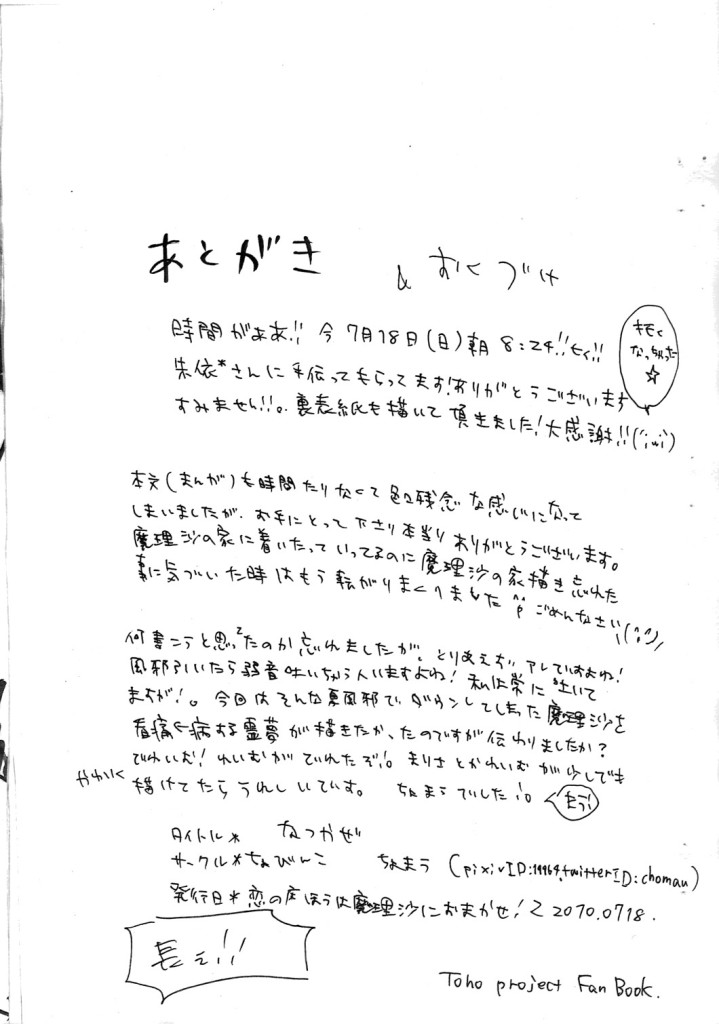 あとがき & おくづけ
時間がぁあ!! 今 7月18日(日)朝 8:24!!
キモくなっちゃった☆
朱依*さんに手伝ってもらってます!ありがとうございます
すみません!!。裏表紙も描いて頂きました!大感謝!!(´;ω;)
本文(まんが)も時間たりなくて色々残念な感じになって
しまいましたが、お手にとって下さり本当にありがとうございます。
魔理沙の家に着いたっていってるのに魔理沙の家描き忘れた
事に気づいた時はもう転がりまくりました ごめんなさい
何書こうと思ってたのか忘れましたが、とりあえず、アレですよね!
風邪引いたら弱音吐いちゃう人いますよね! 私は常に吐いて
ますが!。今回はそんな夏風邪でダウンしてしまった魔理沙を
看病する霊夢が描きたかったのですが伝わりましたか?
でれいむ!れいむがでれたぞ!。まりさとかれいむが少しでも
かわいく描けてたらうれしいです。 ちょまうでした!。
タイトル* なつかぜ
サークル*ちょびんこ ちょまう (pixivID:19964,twitterID:chomau)
発行日*恋の まほうは魔理沙におまかせ!2 2010.0718.
長ぇ!!
Toho project Fan Book.